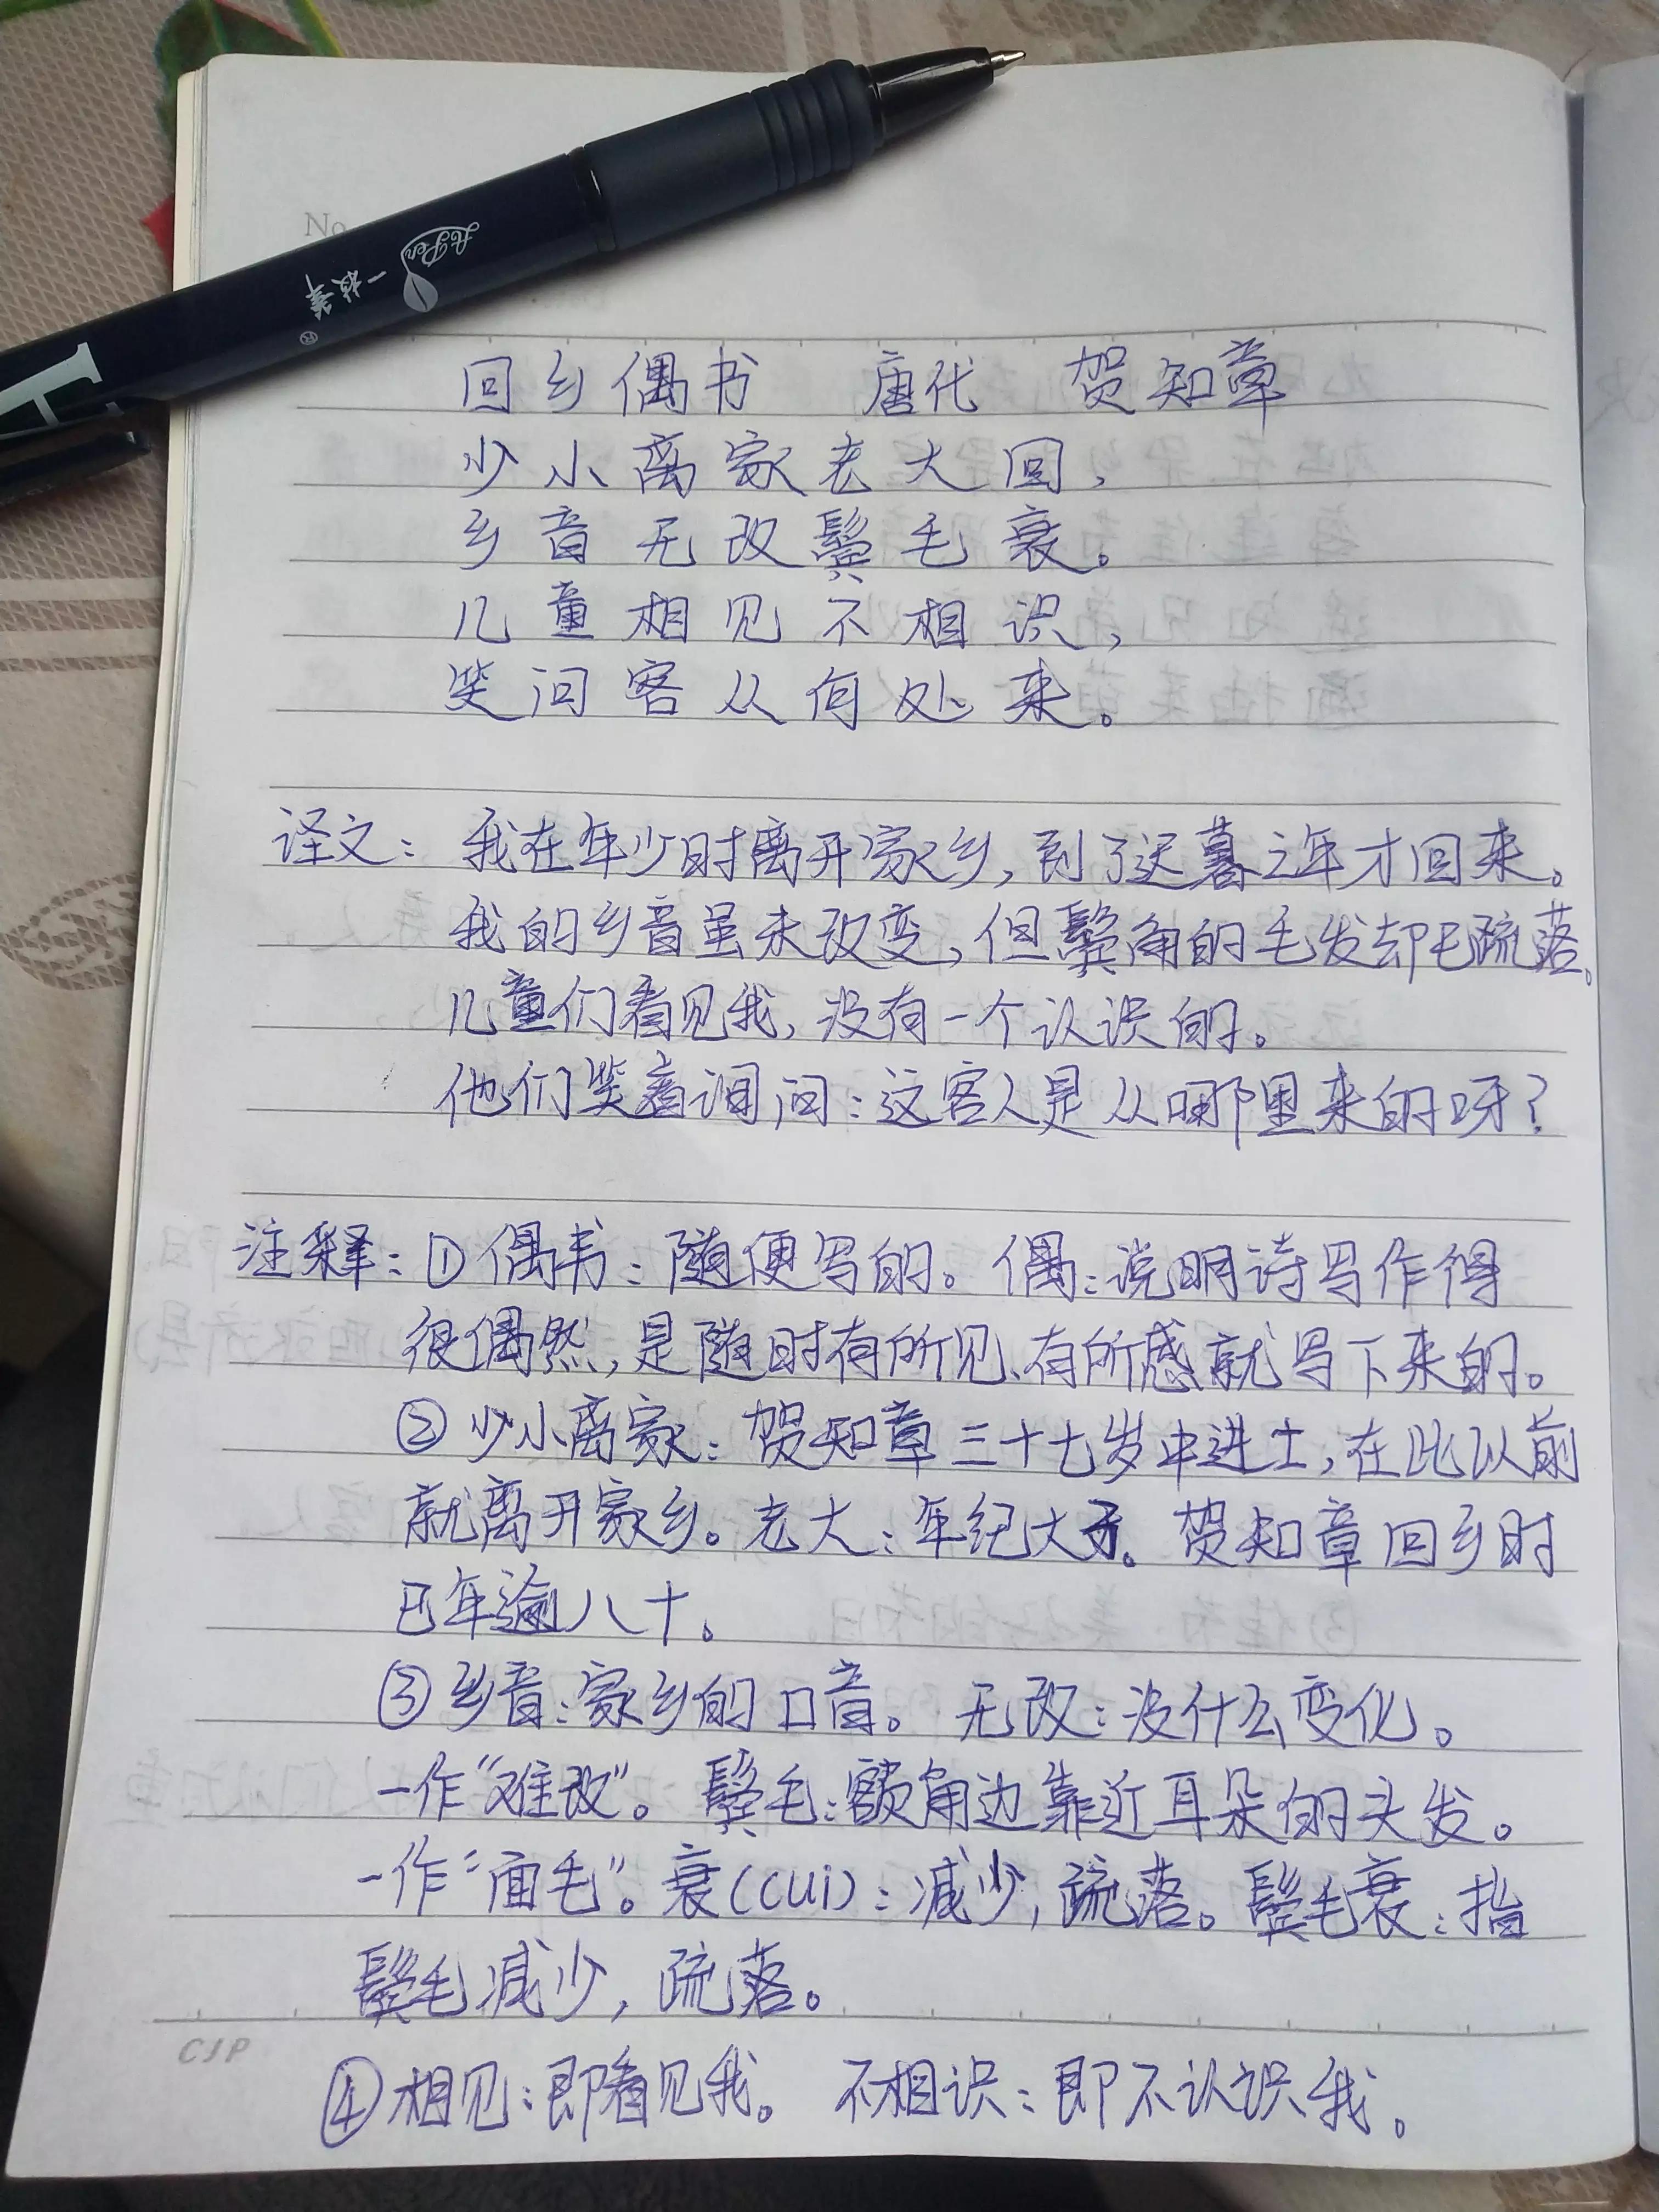 No
A Pen 一枝笔 ®
回乡偶书 唐代 贺知章
少小离家老大回，
乡音无改鬓毛衰。
儿童相见不相识，
笑问客从何处来。
译文：我在年少时离开家乡，到了迟暮之年才回来。
我的乡音虽未改变，但鬓角的毛发却已疏落。
儿童们看见我，没有一个认识的。
他们笑着询问：这客人是从哪里来的呀？
注释：①偶书：随便写的。偶：说明诗写作得
很偶然，是随时有所见、有所感就写下来的。
②少小离家：贺知章三十七岁中进士，在此以前
就离开家乡。老大：年纪大了。贺知章回乡时
已年逾八十。
③乡音：家乡的口音。无改：没什么变化。
一作“难改”。鬓毛：额角边靠近耳朵的头发。
一作“面毛”。衰(cui)：减少，疏落。鬓毛衰：指
鬓毛减少，疏落。
CJP
④相见：即看见我。不相识：即不认识我。